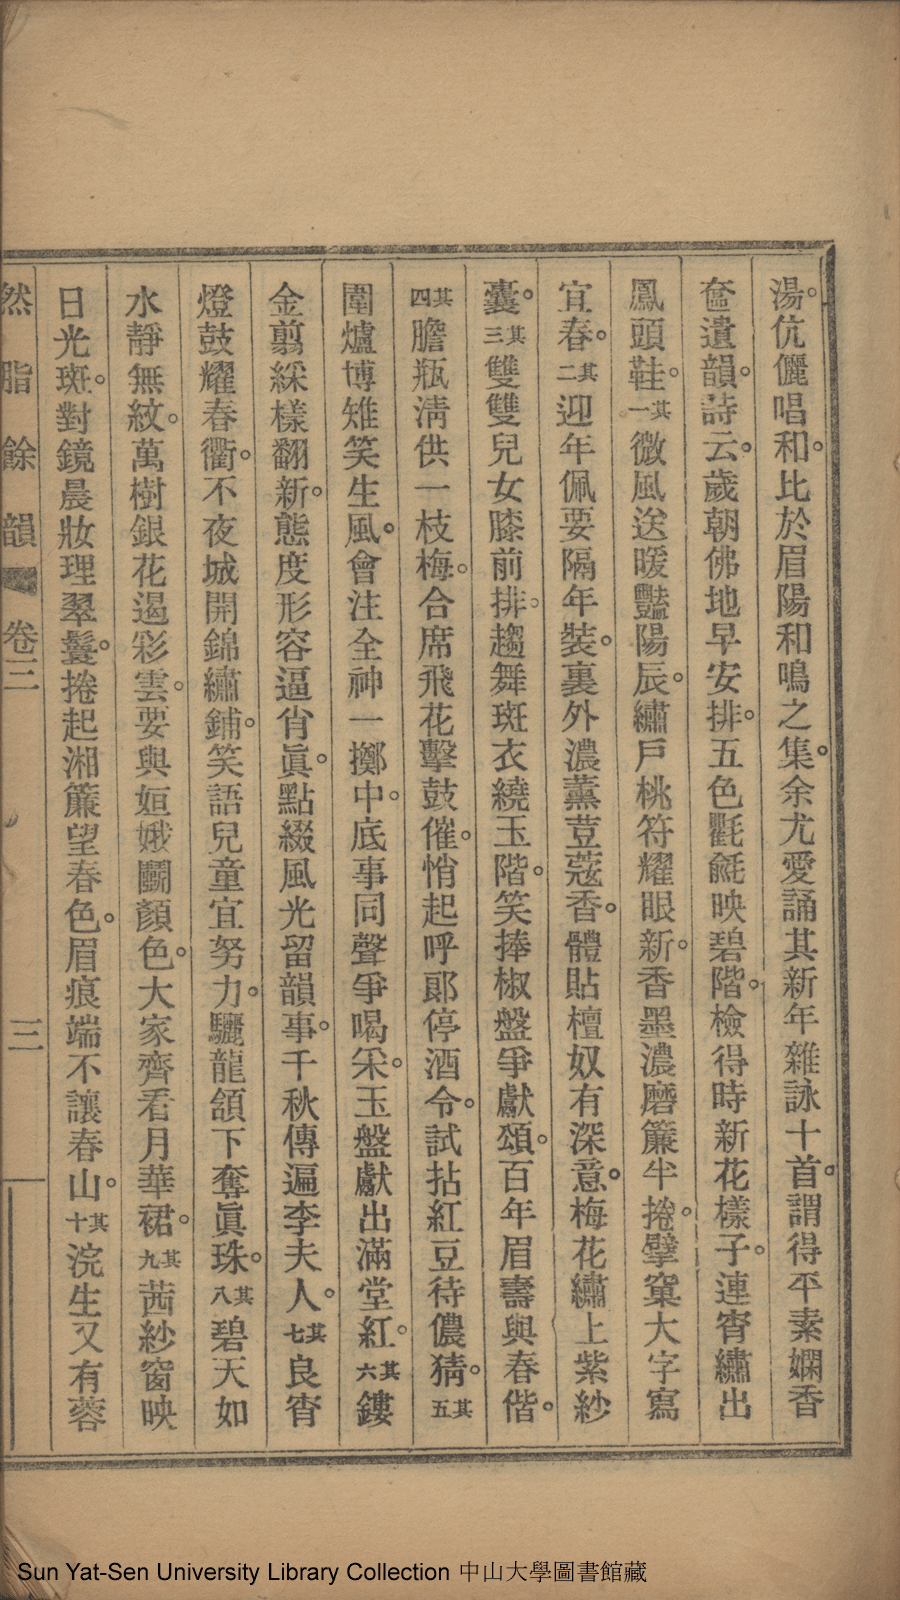 湯。伉儷唱和。比於眉陽和鳴之集。余尤愛誦其新年雜詠十首。謂得平素嫻香
奩遺韻。詩云。歲朝佛地早安排。五色氍毹映碧階。檢得時新花樣子。連宵繡出
鳳頭鞋。其一微風送暖豔陽辰。繡戶桃符耀眼新。香墨濃磨簾半捲。擘窠大字寫
宜春。其二迎年佩要隔年裝。裏外濃薰荳蔻香。體貼檀奴有深意。梅花繡上紫紗
囊。其三雙雙兒女膝前排。趨舞斑衣繞玉階。笑捧椒盤爭獻頌。百年眉壽與春偕。
其四膽瓶清供一枝梅。合席飛花擊鼓催。悄起呼郎停酒令。試拈紅豆待儂猜。其五
圍爐博雉笑生風。會注全神一擲中。底事同聲爭喝采。玉盤獻出滿堂紅。其六鏤
金翦綵樣翻新。態度形容逼肖眞。點綴風光留韻事。千秋傳遍李夫人。其七良宵
燈鼓耀春衢。不夜城開錦繡鋪。笑語兒童宜努力。驪龍頷下奪眞珠。其八碧天如
水靜無紋。萬樹銀花遏彩雲。要與姮娥鬭顏色。大家齊看月華裙。其九茜紗窗映
日光斑。對鏡晨妝理翠鬟。捲起湘簾望春色。眉痕端不讓春山。其十浣生又有蓉
然脂餘韻 卷三 三
Sun Yat-Sen University Library Collection 中山大學圖書館藏